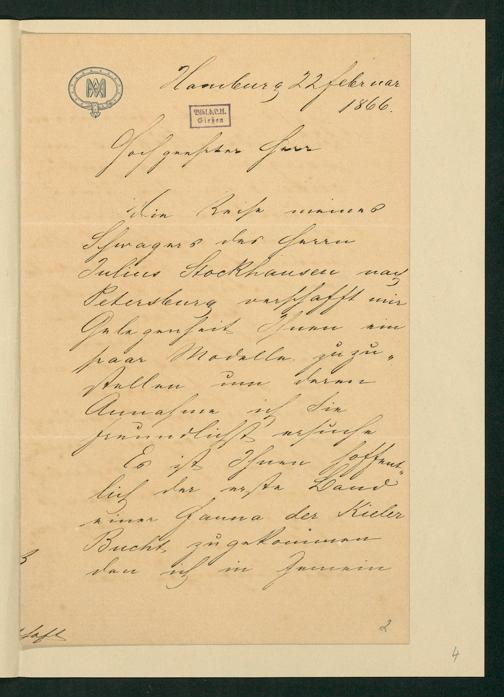 Hamburg 22 Februar
1866.
Bibl. d. U.
Gießen
Hochgeehrter Herr
Die Reise meines
Schwagers des Herrn
Julius Stockhausen nach
Petersburg verschafft mir
Gelegenheit Ihnen ein
paar Modelle zuzu-
stellen um deren
Annahme ich Sie
freundlichst ersuche
Es ist Ihnen hoffent-
lich der erste Band
einer Fauna der Kieler
Bucht, zugekommen
den ich in Gemein
2
4